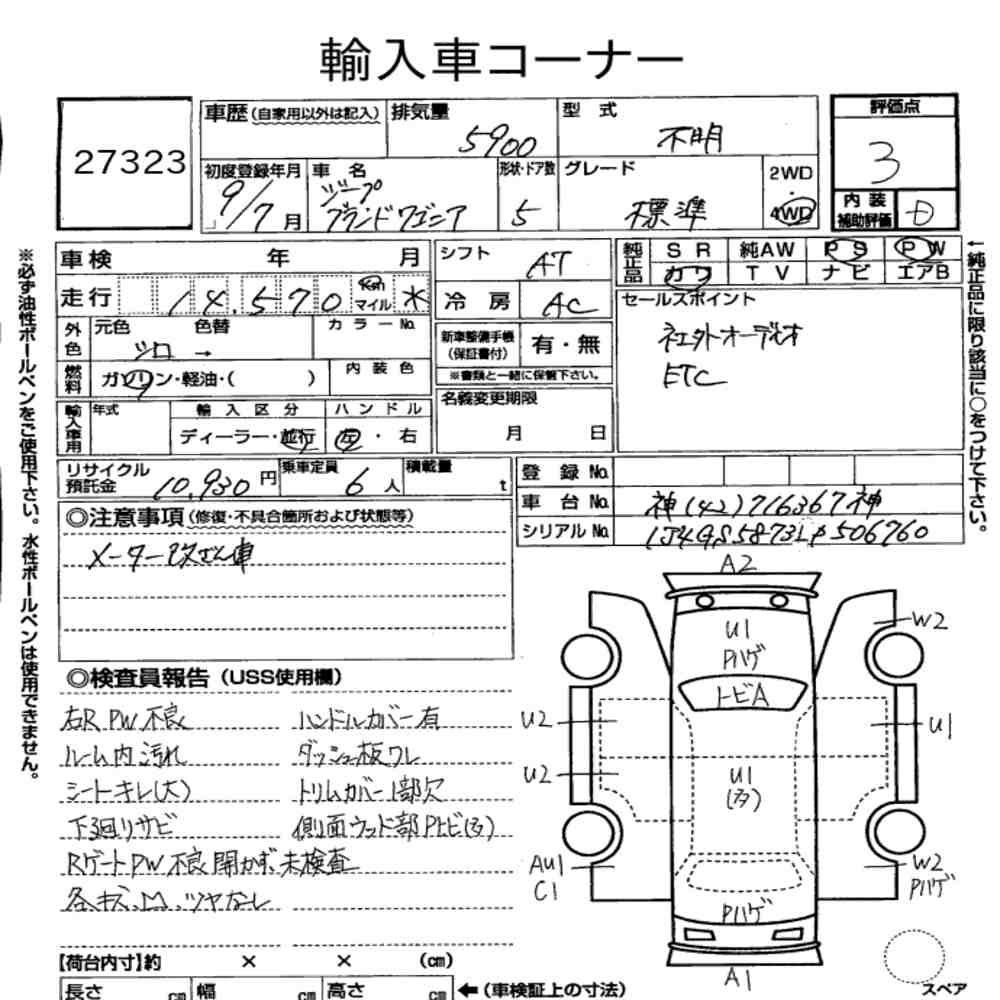 輸入車コーナー
27323
車歴 (自家用以外は記入)
排気量 5900
型式 不明
評価点 3
初度登録年月 9/7月
車名 ジープ
グランドワゴニア
形状・ドア数 5
グレード 標準
2WD・4WD
内装補助評価 D
※必ず油性ボールペンをご使用下さい。水性ボールペンは使用できません。
車検 年 月
シフト AT
純正品 SR 純AW PS PW
カワ TV ナビ エアB
←純正品に限り該当に○をつけて下さい。
走行 14,570 Km マイル 水
冷房 AC
セールスポイント
社外オーディオ
ETC
外色 元色 シロ 色替 → カラーNo.
新車整備手帳(保証書付) 有・無
※書類と一緒に保管下さい。
燃料 ガソリン・軽油・( ) 内装色
名義変更期限 月 日
輸入車用 年式 輸入区分 ハンドル
ディーラー・並行 左・右
リサイクル預託金 10,930円
乗車定員 6人
積載量 t
登録No.
車台No. 神(42)716367神
シリアルNo. 1J4GS5873LP506760
◎注意事項 (修復・不具合箇所および状態等)
メーター改ざん車
◎検査員報告 (USS使用欄)
右R PW不良 ハンドルカバー有
ルーム内汚れ ダッシュ板ワレ
シートキレ(大) トリムカバー1部欠
下廻りサビ 側面ウッド部Pトビ(多)
RゲートPW不良開かず、未検査
各、キズ、凹、ツヤなし
A2
W2
U1
Pハゲ
トビA
U2
U1
U2
U1
(多)
AU1
C1
W2
Pハゲ
Pハゲ
A1
スペア
【荷台内寸】約 × × (cm)
長さ cm 幅 cm 高さ cm ←(車検証上の寸法)